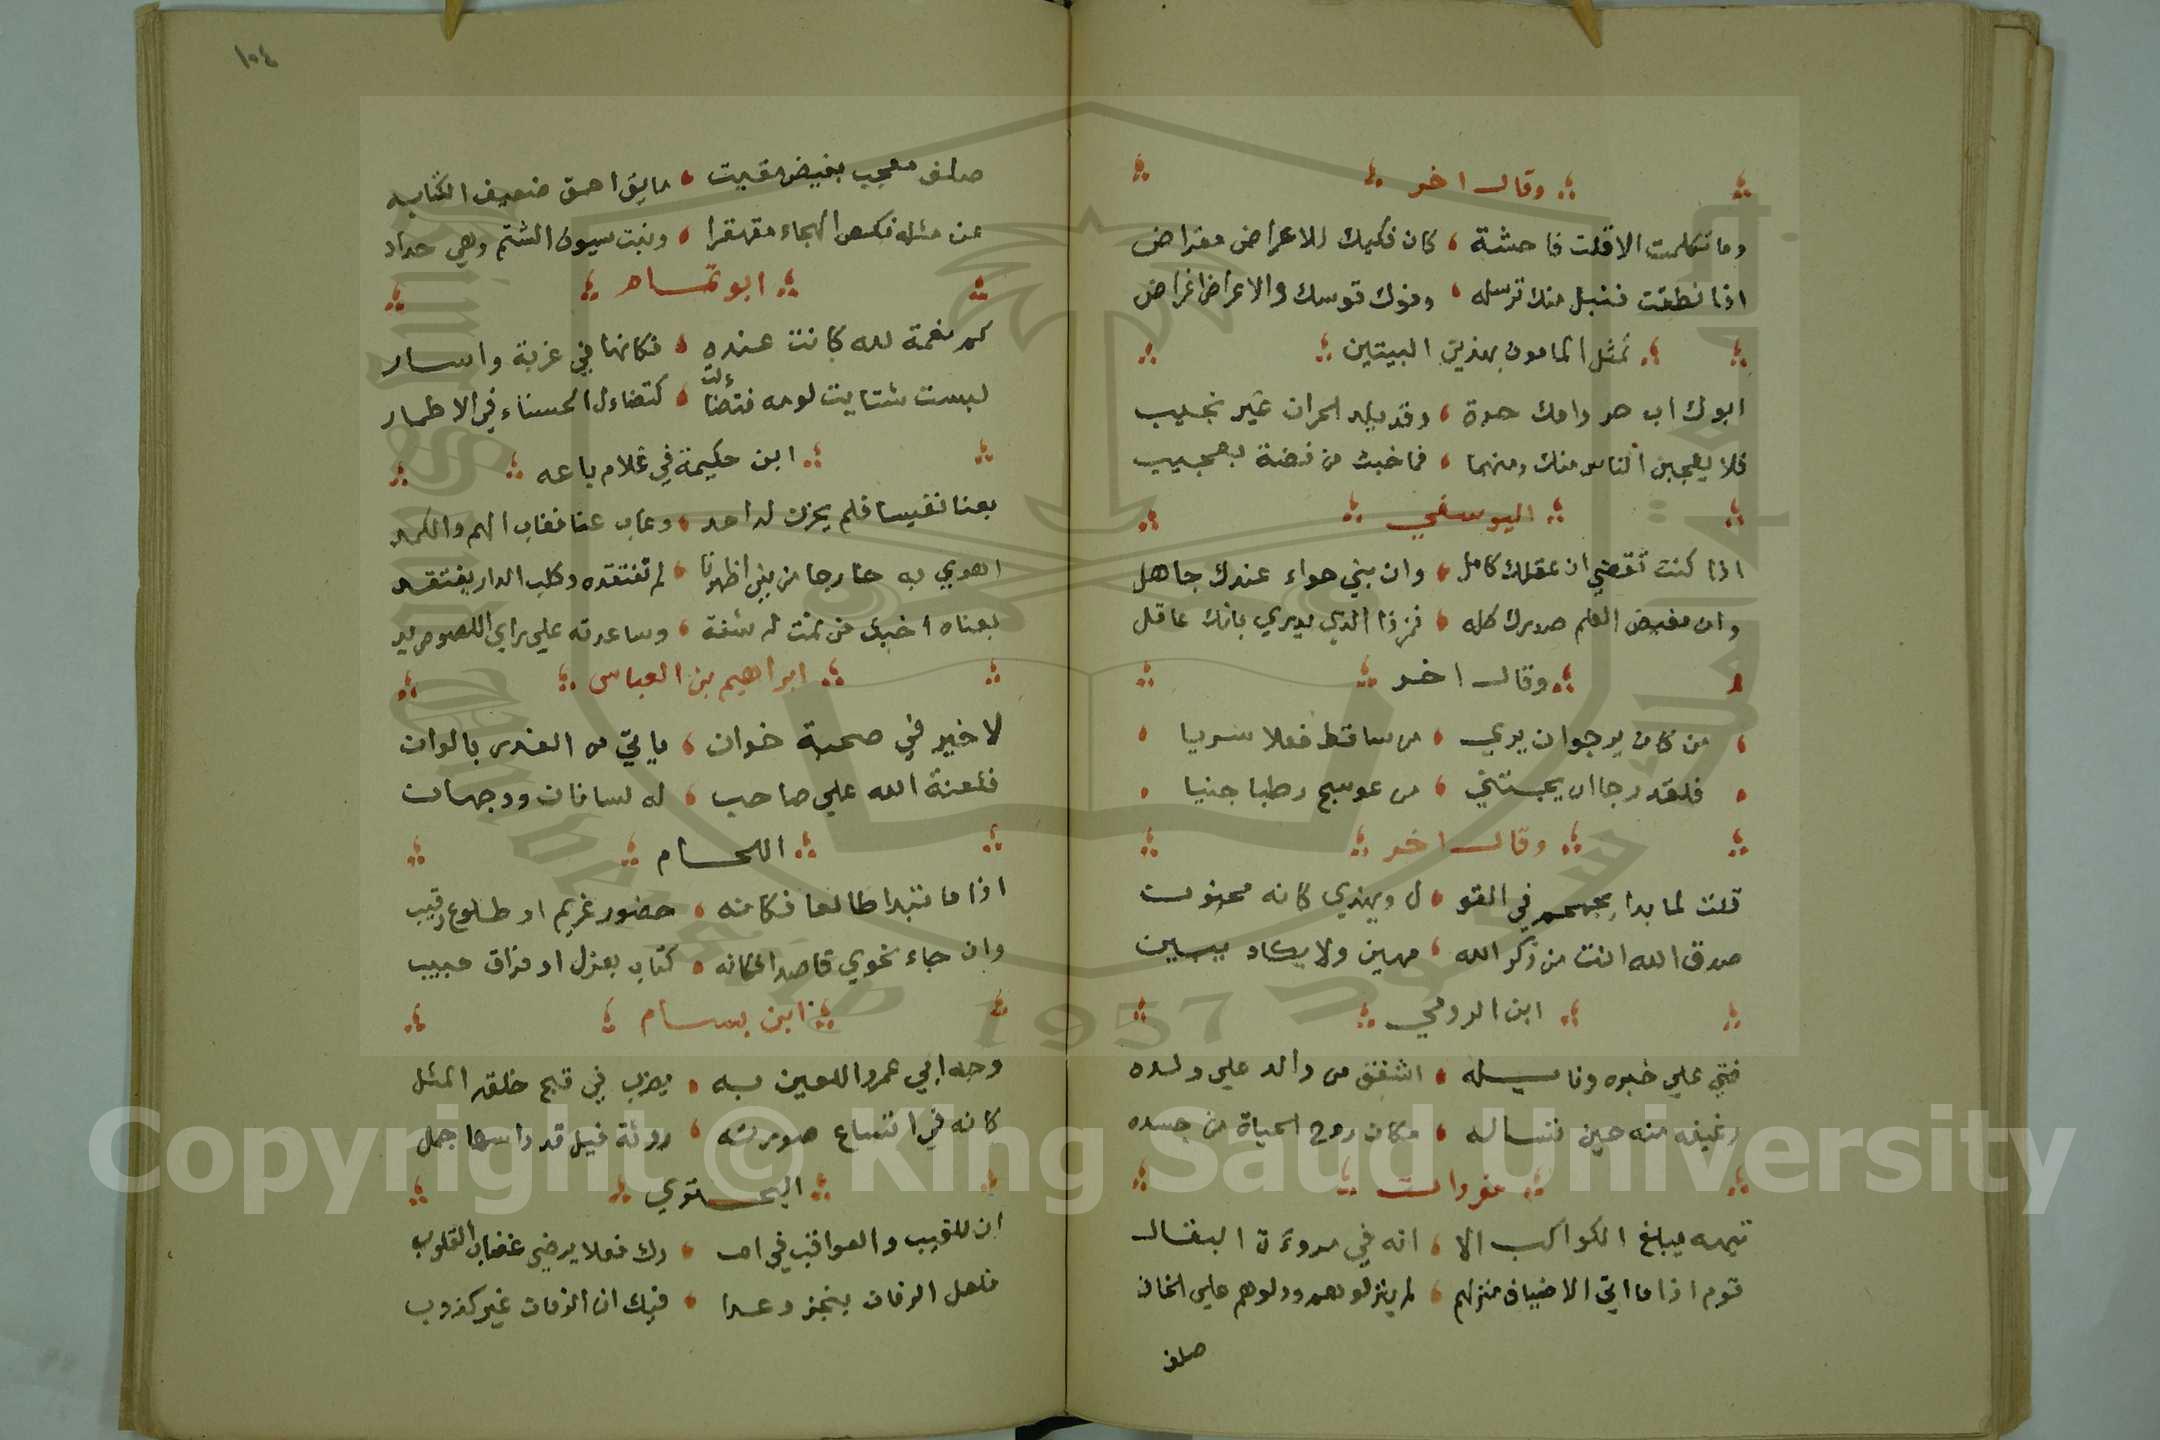 وقال اخر
وما تكلمت الا قلت فاحشة كان فكيك للاعراض مقراض
اذا نطقت فنبل منك ترسله وفوك قوسك والاعراض اغراض
تمثل المامون بهذين البيتين
ابوك اب حر وامك حرة وقد يلد الحران غير نجيب
فلا يعجبن الناس منك ومنهما فما خبث من فضة بعجيب
اليوسفي
اذا كنت تقضي ان عقلك كامل وان بني حواء عندك جاهل
وان مفيض العلم صدرك كله فمن ذا الذي يدري بانك عاقل
وقال اخر
من كان يرجو ان يري من ساقط فعلا سريا
فلقد رجا ان يجتني من عوسج رطبا جنيا
وقال اخر
قلت لما بدا يجمجم في القو ل ويهذي كانه مجنون
صدق الله انت من ذكر الله مهين ولا يكاد يبين
ابن الرومي
فتي علي خبزه ونايله اشفق من والد علي ولده
رغيفه منه حين تساله مكان روح الحياة من جسده
مفردات
تيهه يبلغ الكواكب الا انه في مروءة البقال
قوم اذا ما اتي الاضياف منزلهم لم ينزلوهم ودلوهم علي الخان
صلف
١٥٤
صلف معجب بغيض مقيت مايق احمق ضعيف الكتابه
عن مثله نكص الهجاء مقهقرا ونبت سيوف الشتم وهي حداد
ابو تمام
كم نعمة لله كانت عنده فكانها في غربة واسار
لبست شتايت لومه فتضاءلت كتضاءل الحسناء في الاطمار
ابن حكيمة في غلام باعه
بعنا نفيسا فلم يحزن له احد وغاب عنا فغاب الهم والكمد
اهوي به خارجا من بين اظهرنا لم نفتقده وكلب الدار يفتقد
بعناه اخبث من تمت له سفة وساعدته علي راي اللصوص يد
ابراهيم بن العباس
لا خير في صحبة خوان ياتي من الغدر بالوان
فلعنة الله علي صاحب له لسانان ووجهان
اللحام
اذا ما تبدا طالعا فكانه حضور غريم او طلوع رقيب
وان جاء نحوي قاصدا فكانه كتاب بعزل او فراق حبيب
ابن بسام
وجه ابي عمرو اللعين به يضرب في قبح خلقه المثل
كانه في اتساع صورته روثة فيل قد داسها جمل
البحتري
ان للغيب والعواقب في امـ رك فعلا يرضي غضاب القلوب
فلعل الزمان ينجز وعدا فيك ان الزمان غير كذوب
Copyright © King Saud University
1957